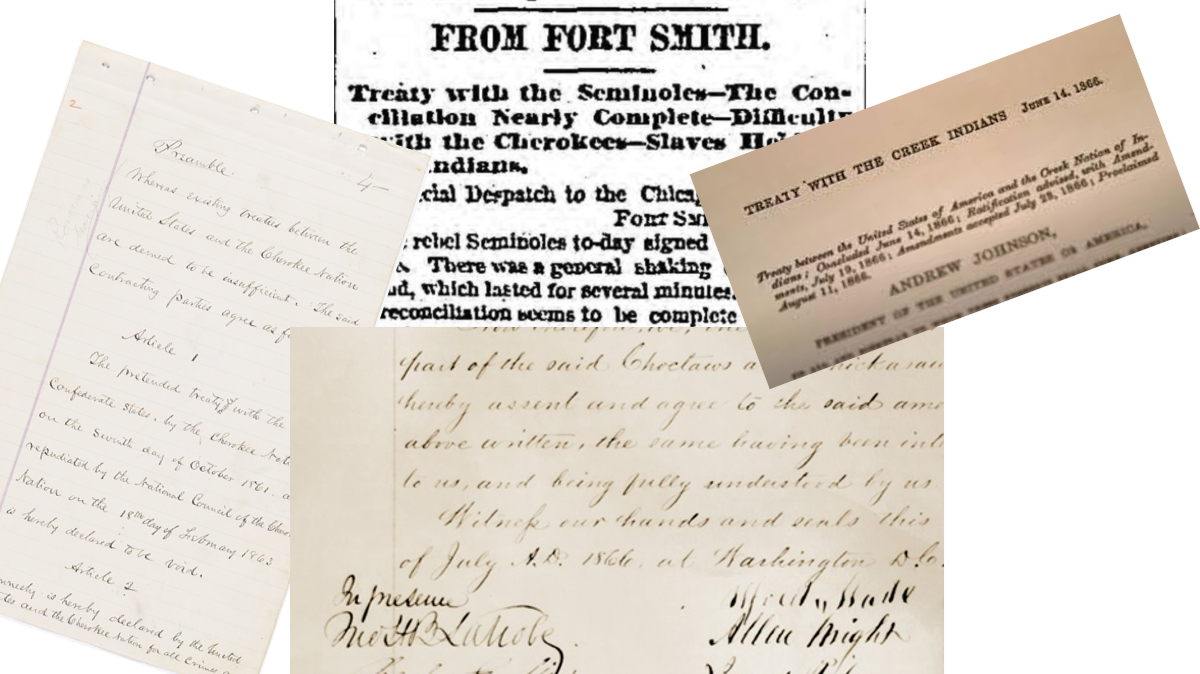 FROM FORT SMITH.
Treaty with the Seminoles—The Con-
ciliation Nearly Complete—Difficulty
with the Cherokees—Slaves
Indians.
cial Despatch to the
rebel Seminoles to-day signed
There was a general shaking
which lasted for several minutes.
reconciliation seems to be complete
2
4
Preamble.
Whereas existing treaties between the
United States and the Cherokee Nation
are deemed to be insufficient. The said
Contracting parties agree as
Article 1
The pretended treaty with the
Confederate States. by the Cherokee
on the Seventh day of October 1861.
repudiated by the National Council of the
Nation on the 18th day of February 1863
is hereby declared to be void.
Article 2
is hereby declared by the United
and the Cherokee Nation for all Crimes
TREATY WITH THE CREEK INDIANS JUNE 14, 1866.
Treaty between the United States of America and the Creek Nation of In-
dians; Concluded June 14, 1866; Ratification advised, with Amend-
ments, July 19, 1866; Amendments accepted July 23, 1866; Proclaimed
August 11, 1866.
ANDREW JOHNSON,
PRESIDENT OF THE UNITED STATES OF AMERICA,
part of the said Choctaws
hereby assent and agree to the said
above written, the same having been
to us, and being fully understood by us
Witness our hands and seals this
of July A.D. 1866. at Washington D.C.
In presence
Jno H B Latrobe
Alfred Wade
Allen Wright